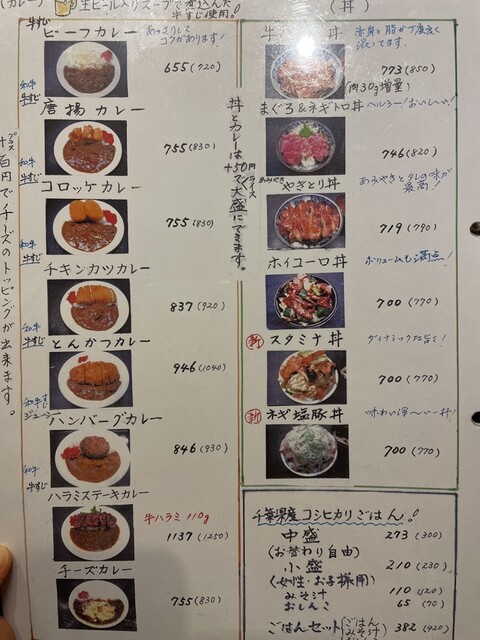 (カレー)
生ビール入りスープで煮込んだ
牛すじ使用!
牛すじ
ビーフカレー
あっさりして
コクがあります!
655 (720)
和牛
牛すじ
唐揚カレー
755 (830)
和牛
牛すじ
コロッケカレー
755 (830)
和牛
牛すじ
チキンカツカレー
837 (920)
和牛
牛すじ
とんかつカレー
946 (1040)
和牛すじ
ジューシー
ハンバーグカレー
846 (930)
和牛
牛すじ
ハラミステーキカレー
牛ハラミ 110g
1137 (1250)
チーズカレー
755 (830)
プラス
+百円でチーズのトッピングが出来ます。
丼とカレーは
+50円で大盛にできます。
プラス
(丼)
赤身と脂が丁度良く
混ってます。
773 (850)
(肉30g増量)
まぐろ&ネギトロ丼
ヘルシー!おいしい!
746 (820)
あみやき
やきとり丼
あみやきとタレの味が
最高!
719 (790)
ホイコーロ丼
ボリュームも満点!
700 (770)
新
スタミナ丼
ダイナミックな旨さ!
700 (770)
新
ネギ塩豚丼
700 (770)
千葉県産 コシヒカリごはん!
中盛 273 (300)
(お替わり自由)
小盛 210 (230)
(女性・お子様用)
みそ汁 110 (120)
おしんこ 65 (70)
ごはんセット(ごはん
みそ汁
382 (420)